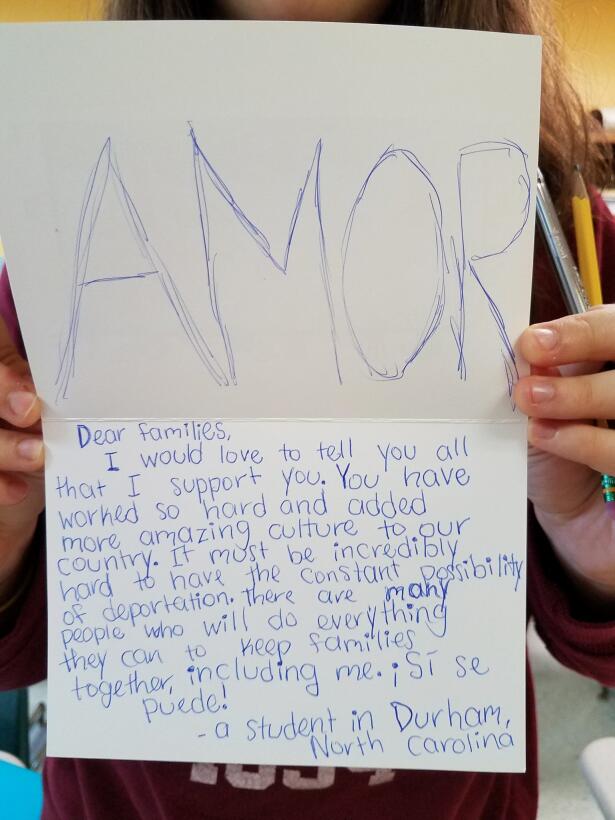 AMOR
Dear families,
I would love to tell you all
that I support you. You have
worked so hard and added
more amazing culture to our
country. It must be incredibly
hard to have the constant possibility
of deportation. there are many
people who will do everything
they can to keep families
together, including me. ¡Sí se
puede!
- a student in Durham,
North Carolina